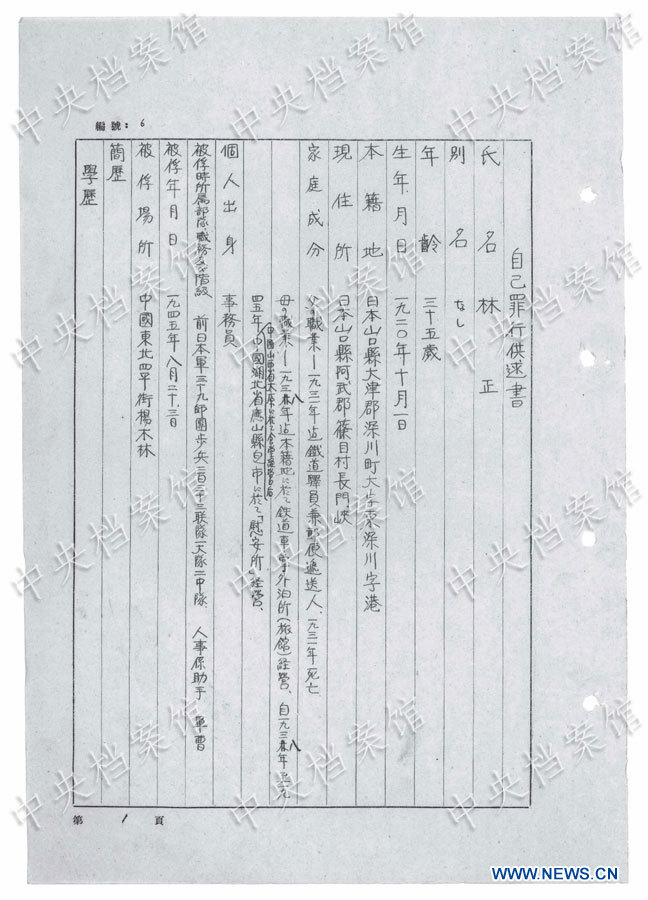 編號: 6
自己罪行供述書
氏名 林正
別名 なし
年齡 三十五歲
生年月日 一九二〇年十月一日
本籍地 日本山口縣大津郡深川町大字 深川字港
現住所 日本山口縣阿武郡篠目村長門峽
家庭成分 父の職業—一九三一年迄鐵道驛員兼郵便遞送人、一九三一年死亡
母の職業—一九三八年迄本籍地に於て鉄道 外泊所(旅館)経営、自一九三八年 一九
四五年 中國湖北省應山縣 市に於て「慰安所」経営、
個人出身 事務員
被俘時所属部隊職務及階級 前日本軍三十九師團歩兵二百三十三联隊一大隊二中隊 人事係助手 軍曹
被俘年月日 一九四五年八月二十三日
被俘場所 中國東北四平街楊木林
簡歷
學歷
第 1 頁
中央档案馆
WWW.NEWS.CN